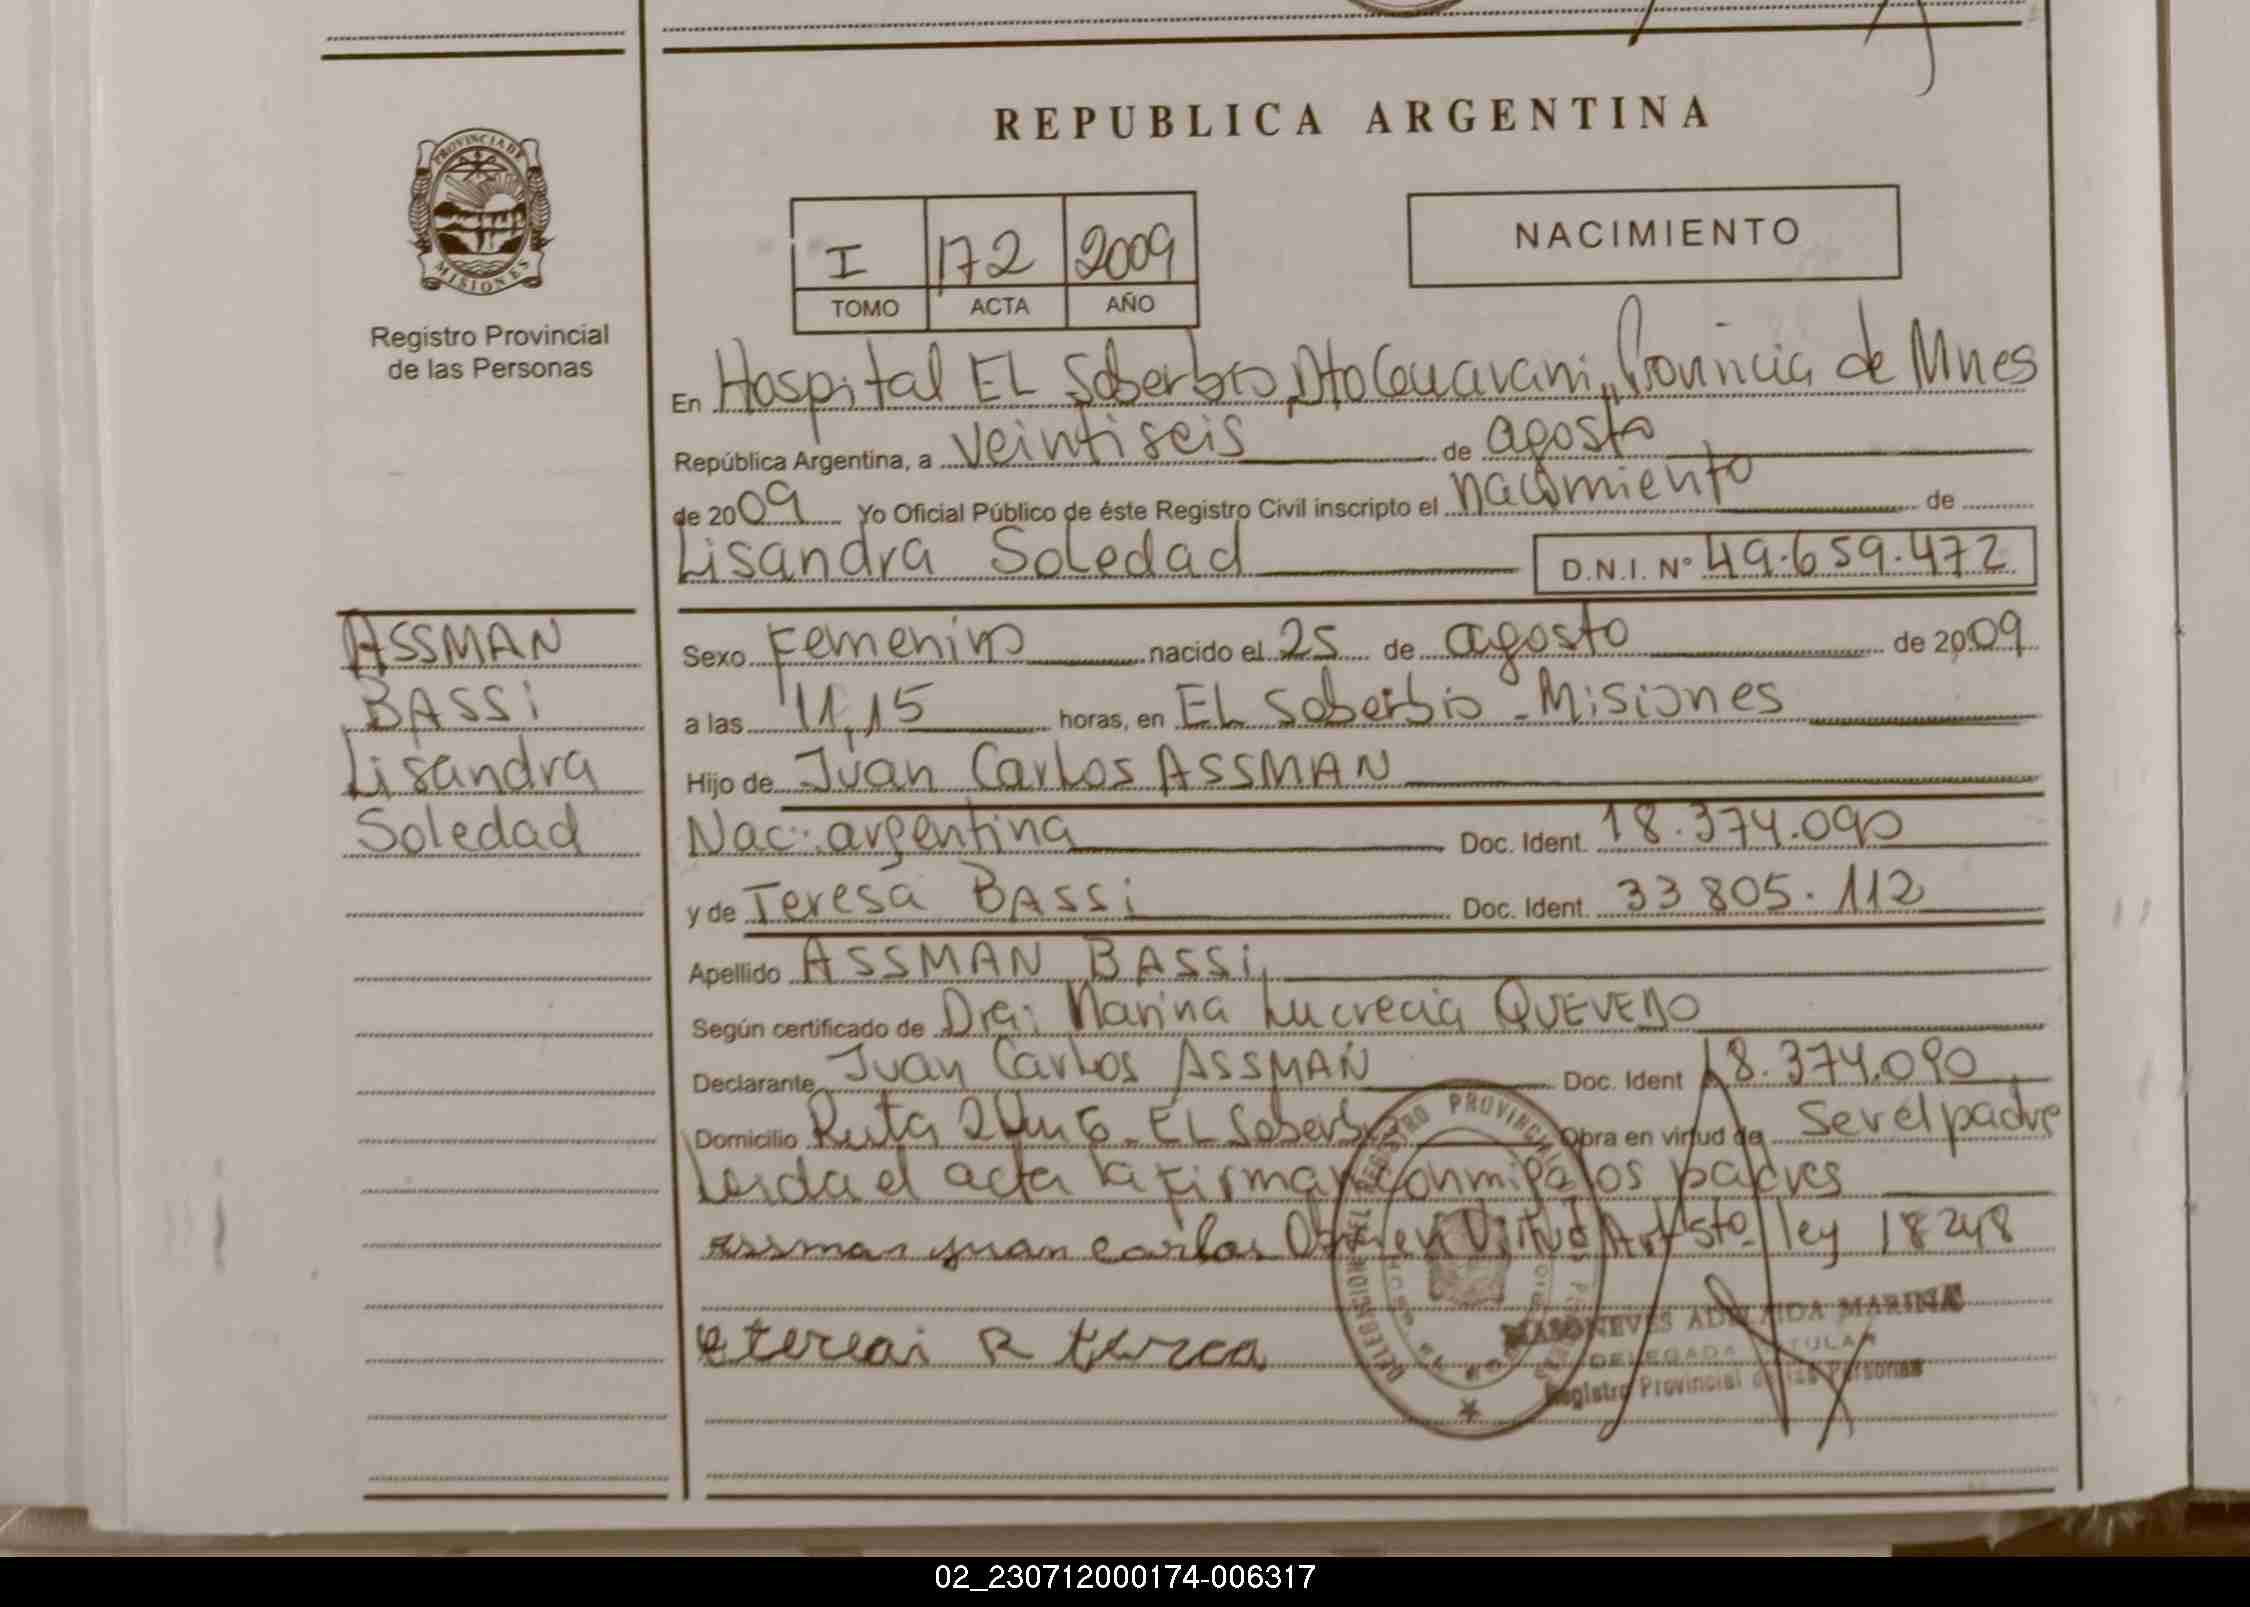 REPUBLICA ARGENTINA
PROVINCIA DE
MISIONES
Registro Provincial
de las Personas
I 172 2009
TOMO ACTA AÑO
NACIMIENTO
En Hospital EL Soberbio, Dto Guarani, Provincia de Mnes
República Argentina, a veintiseis de agosto
de 2009 Yo Oficial Público de éste Registro Civil inscripto el nacimiento de
Lisandra Soledad D.N.I. Nº 49.659.472
ASSMAN
BASSi
Lisandra
Soledad
Sexo Femenino nacido el 25 de agosto de 2009
a las 11,15 horas, en EL Soberbio - Misiones
Hijo de Juan Carlos ASSMAN
Nac: argentina Doc. Ident. 18.374.090
y de Teresa BASSi Doc. Ident. 33 805.112
Apellido ASSMAN BASSi
Según certificado de Dra: Marina Lucrecia QUEVEDO
Declarante Juan Carlos ASSMAN Doc. Ident 18.374.090
Domicilio Ruta 2 Km 6 - EL Soberbio Obra en virtud de Ser el padre
Leida el acta la firman conmigo los padres
assman juan carlos Virtud Art 5to ley 18248
REGISTRO PROVINCIAL
ADELAIDA MARINA
DELEGADA TITULAR
Registro Provincial de las Personas
02_230712000174-006317